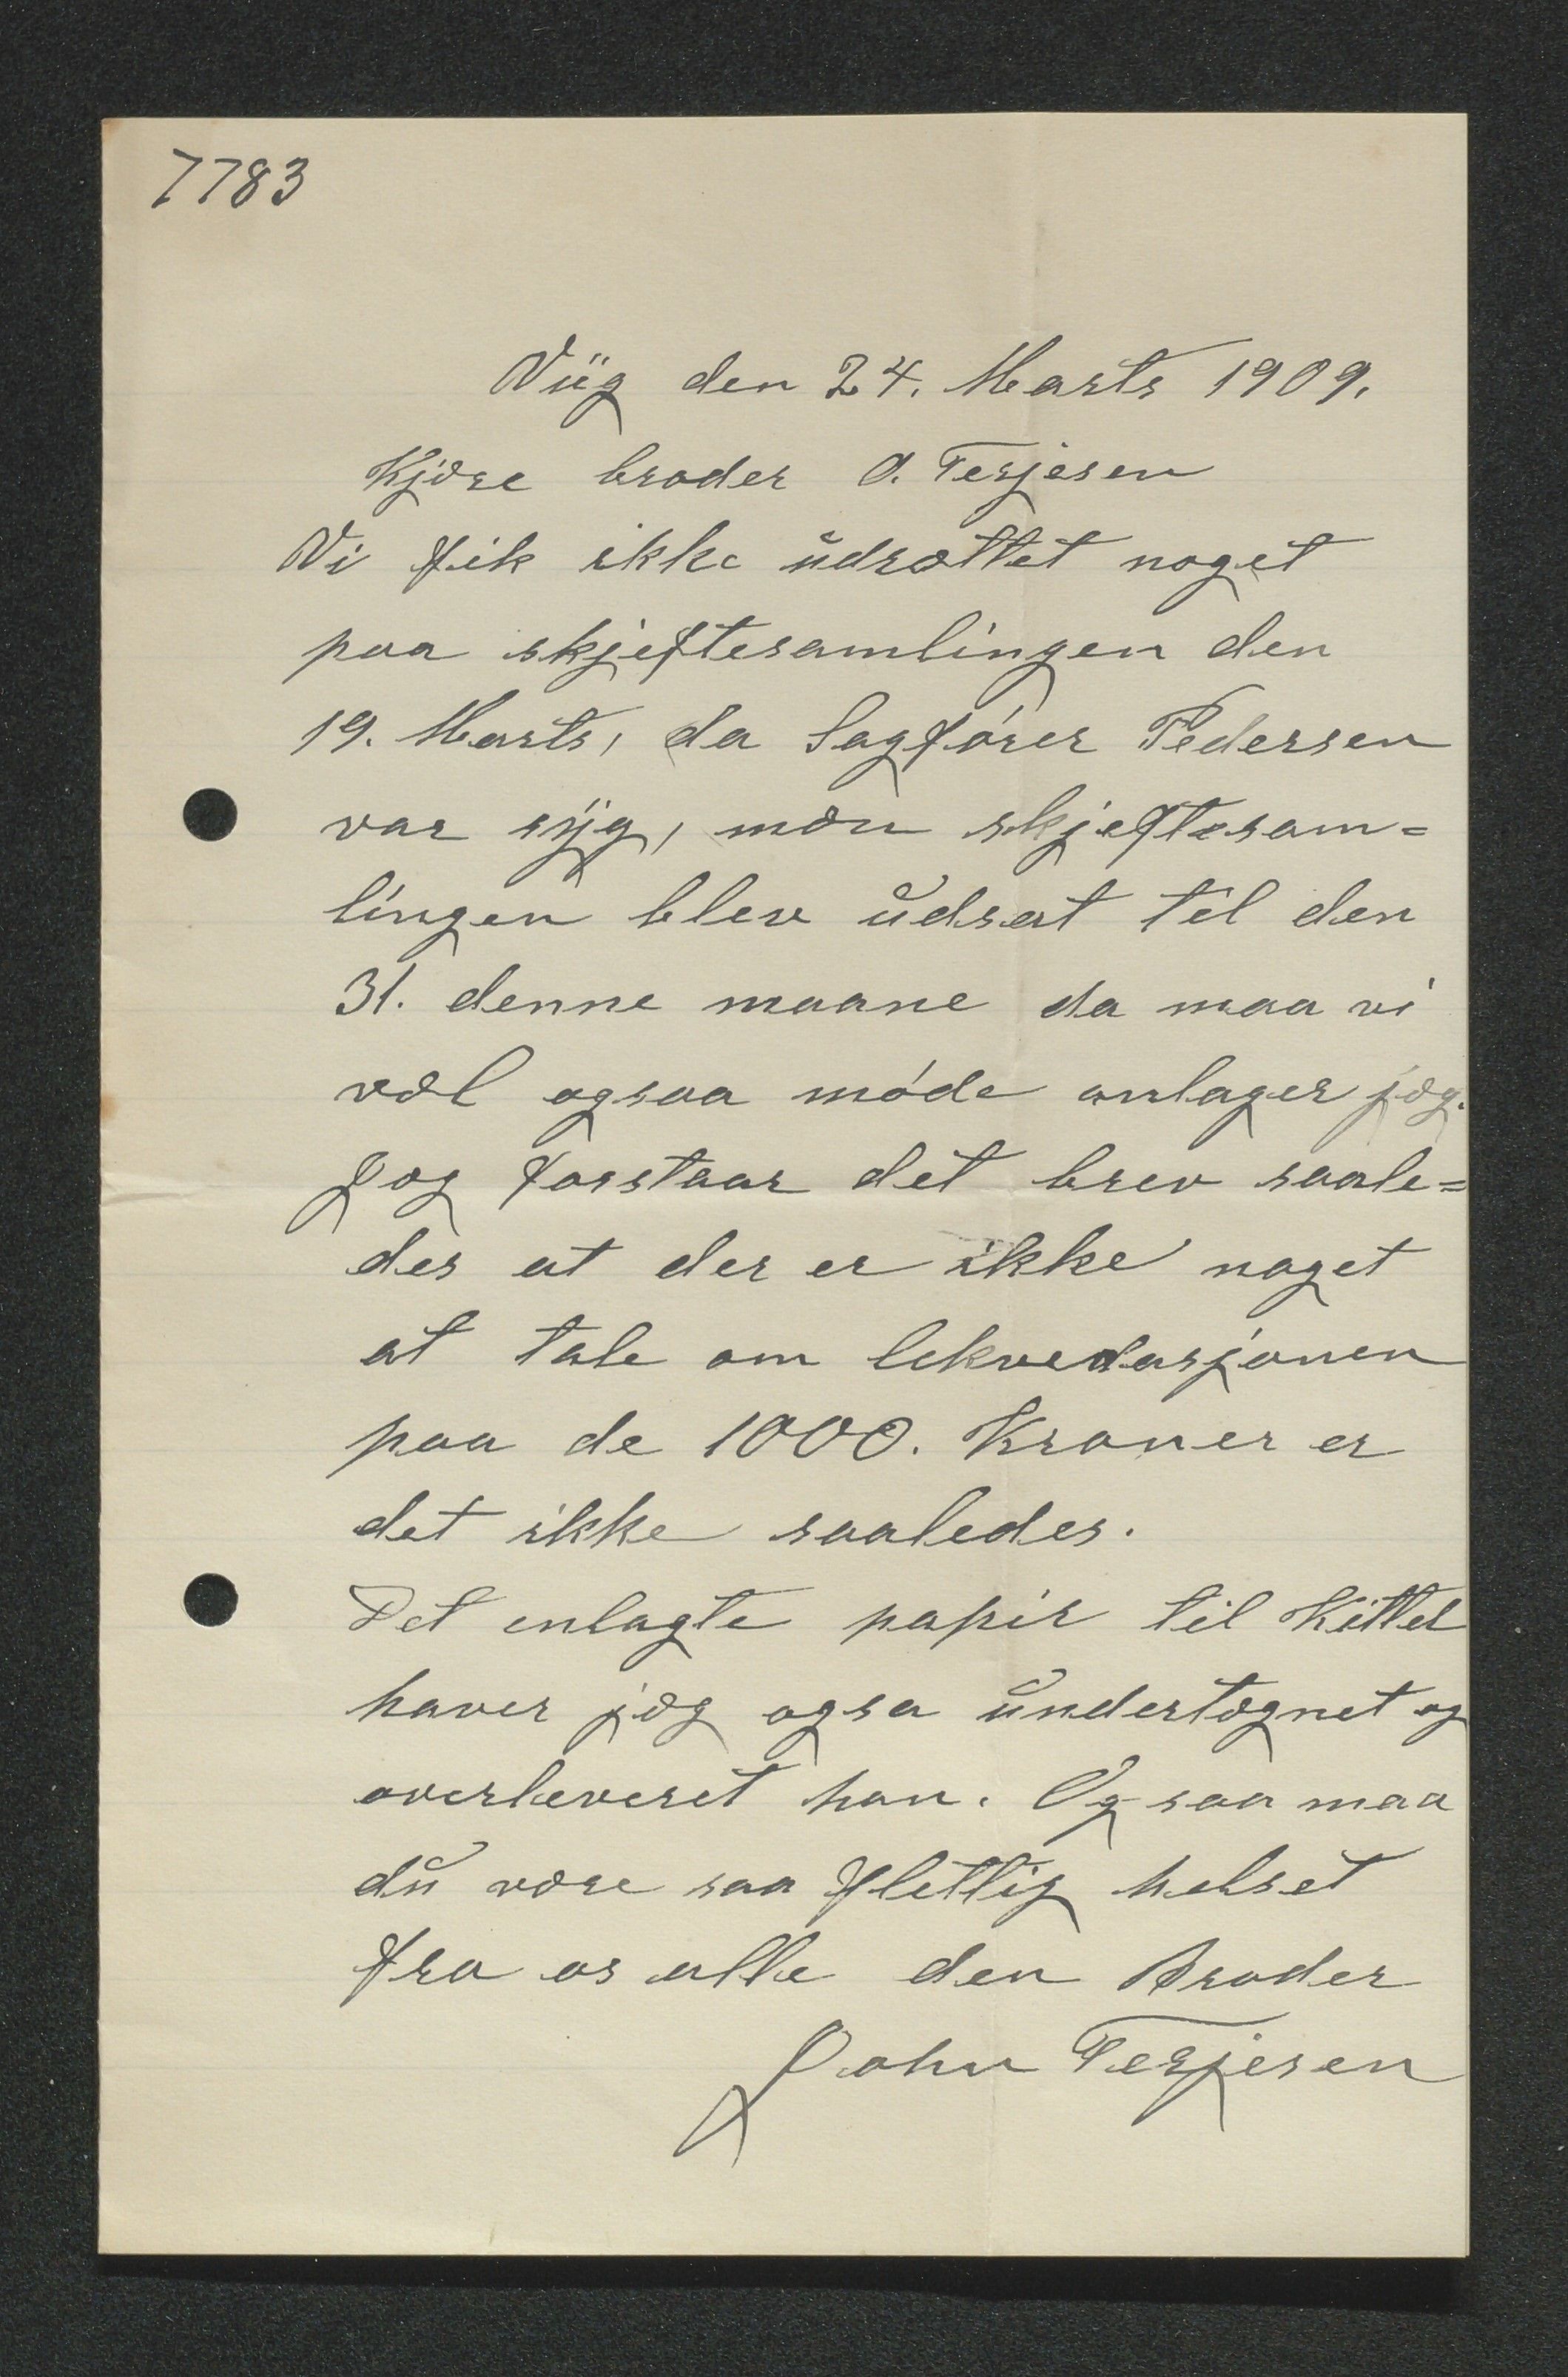 7783
Viig den 24. Marts 1909.
Kjære broder O. Terjesen
Vi fik ikke udrættet noget
paa skjeftesamlingen den
19. Marts, da Sagfører Pedersen
var syg, mæn skjeftesam=
lingen blev udsat til den
31. denne maane da maa vi
væl ogsaa møde anlager jæg.
Jæg forstaar det brev saale=
des at der er ikke noget
at tale om lekvedasjonen
paa de 1000. Kroner er
det ikke saaledes.
Det enlagte papir til Kittel
haver jæg ogsa undertægnet og
overleveret han. Og saa maa
du være saa flettig helset
fra os alle den Broder
John Terjesen